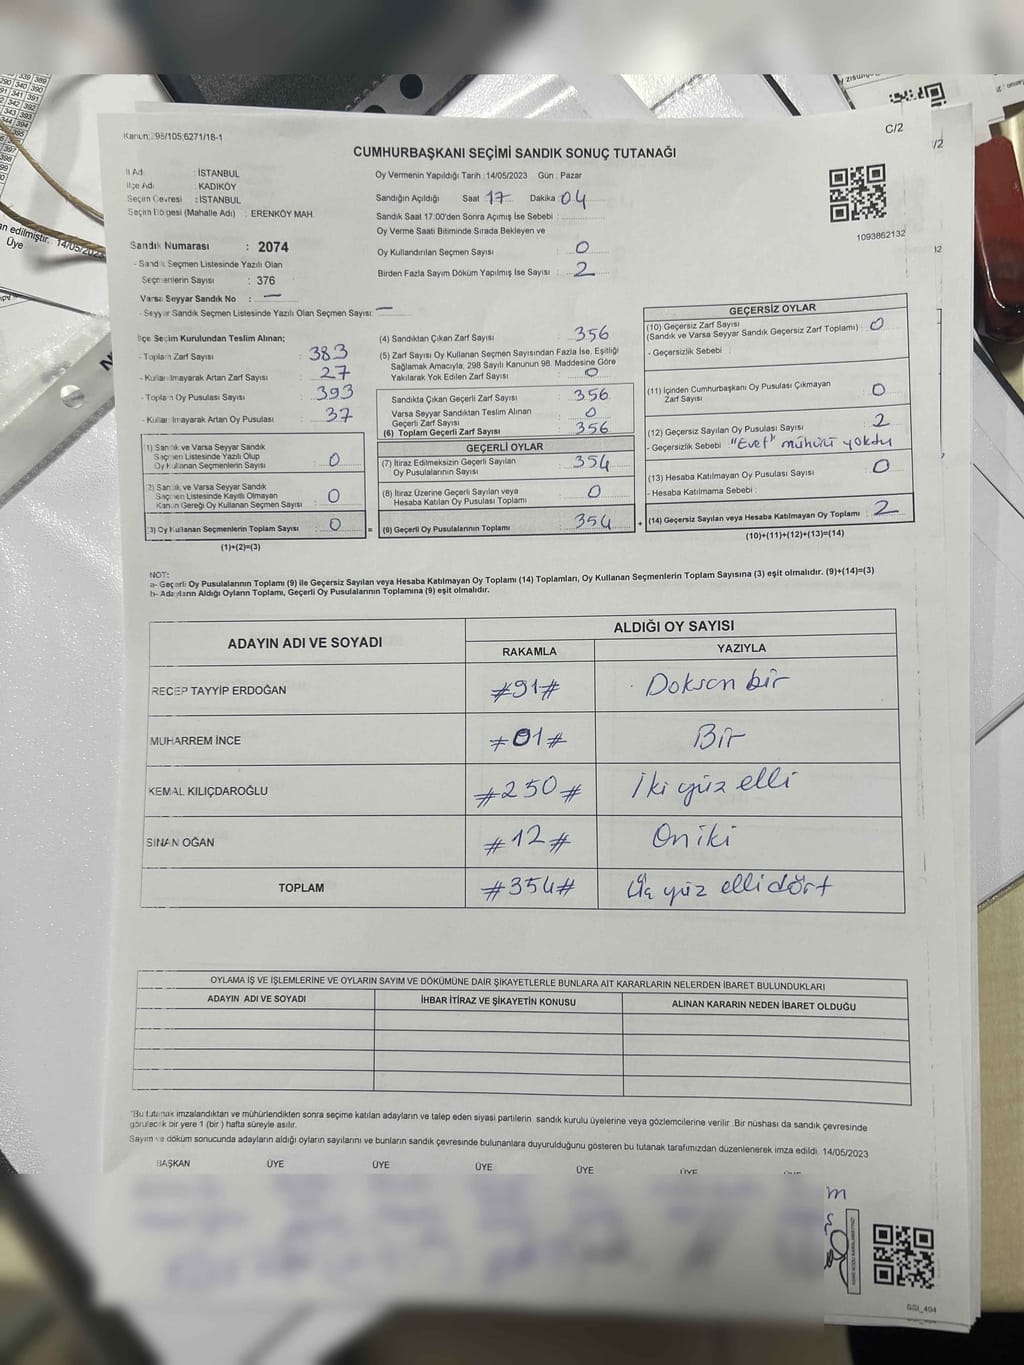 Kanun: 95/105;6271/18-1
C/2
CUMHURBAŞKANI SEÇİMİ SANDIK SONUÇ TUTANAĞI
İl Adı : İSTANBUL
İlçe Adı : KADIKÖY
Seçim Çevresi : İSTANBUL
Seçim Bölgesi (Mahalle Adı) : ERENKÖY MAH.
Sandık Numarası : 2074
- Sandık Seçmen Listesinde Yazılı Olan
Seçmenlerin Sayısı : 376
Varsa Seyyar Sandık No : —
- Seyyar Sandık Seçmen Listesinde Yazılı Olan Seçmen Sayısı: —
Oy Vermenin Yapıldığı Tarih : 14/05/2023 Gün : Pazar
Sandığın Açıldığı Saat 17 Dakika : 04
Sandık Saat 17:00'den Sonra Açılmış İse Sebebi :
Oy Verme Saati Bitiminde Sırada Bekleyen ve
Oy Kullandırılan Seçmen Sayısı : 0
Birden Fazla Sayım Döküm Yapılmış İse Sayısı : 2
1093862132
İlçe Seçim Kurulundan Teslim Alınan;
- Toplam Zarf Sayısı : 383
- Kullanılmayarak Artan Zarf Sayısı : 27
- Toplam Oy Pusulası Sayısı : 393
- Kullanılmayarak Artan Oy Pusulası : 37
(1) Sandık ve Varsa Seyyar Sandık
Seçmen Listesinde Yazılı Olup
Oy Kullanan Seçmenlerin Sayısı : 0
(2) Sandık ve Varsa Seyyar Sandık
Seçmen Listesinde Kayıtlı Olmayan
Kanun Gereği Oy Kullanan Seçmen Sayısı : 0
(3) Oy Kullanan Seçmenlerin Toplam Sayısı : 0
(1)+(2)=(3)
(4) Sandıktan Çıkan Zarf Sayısı : 356
(5) Zarf Sayısı Oy Kullanan Seçmen Sayısından Fazla İse, Eşitliği
Sağlamak Amacıyla; 298 Sayılı Kanunun 98. Maddesine Göre
Yakılarak Yok Edilen Zarf Sayısı : 0
Sandıkta Çıkan Geçerli Zarf Sayısı : 356
Varsa Seyyar Sandıktan Teslim Alınan
Geçerli Zarf Sayısı : 0
(6) Toplam Geçerli Zarf Sayısı : 356
GEÇERLİ OYLAR
(7) İtiraz Edilmeksizin Geçerli Sayılan
Oy Pusulalarının Sayısı : 354
(8) İtiraz Üzerine Geçerli Sayılan veya
Hesaba Katılan Oy Pusulası Toplamı : 0
= (9) Geçerli Oy Pusulalarının Toplamı : 354
GEÇERSİZ OYLAR
(10) Geçersiz Zarf Sayısı
(Sandık ve Varsa Seyyar Sandık Geçersiz Zarf Toplamı) : 0
- Geçersizlik Sebebi :
(11) İçinden Cumhurbaşkanı Oy Pusulası Çıkmayan
Zarf Sayısı : 0
(12) Geçersiz Sayılan Oy Pusulası Sayısı : 2
- Geçersizlik Sebebi : "Evet" mühürü yoktu
(13) Hesaba Katılmayan Oy Pusulası Sayısı : 0
- Hesaba Katılmama Sebebi :
+ (14) Geçersiz Sayılan veya Hesaba Katılmayan Oy Toplamı : 2
(10)+(11)+(12)+(13)=(14)
NOT:
a- Geçerli Oy Pusulalarının Toplamı (9) ile Geçersiz Sayılan veya Hesaba Katılmayan Oy Toplamı (14) Toplamları, Oy Kullanan Seçmenlerin Toplam Sayısına (3) eşit olmalıdır. (9)+(14)=(3)
b- Adayların Aldığı Oyların Toplamı, Geçerli Oy Pusulalarının Toplamına (9) eşit olmalıdır.
ADAYIN ADI VE SOYADI
ALDIĞI OY SAYISI
RAKAMLA YAZIYLA
RECEP TAYYİP ERDOĞAN #91# Doksan bir
MUHARREM İNCE #01# Bir
KEMAL KILIÇDAROĞLU #250# İki yüz elli
SİNAN OĞAN #12# On iki
TOPLAM #354# Üç yüz elli dört
OYLAMA İŞ VE İŞLEMLERİNE VE OYLARIN SAYIM VE DÖKÜMÜNE DAİR ŞİKAYETLERLE BUNLARA AİT KARARLARIN NELERDEN İBARET BULUNDUKLARI
ADAYIN ADI VE SOYADI İHBAR İTİRAZ VE ŞİKAYETİN KONUSU ALINAN KARARIN NEDEN İBARET OLDUĞU
*Bu tutanak imzalandıktan ve mühürlendikten sonra seçime katılan adayların ve talep eden siyasi partilerin sandık kurulu üyelerine veya gözlemcilerine verilir .Bir nüshası da sandık çevresinde
görülecek bir yere 1 (bir ) hafta süreyle asılır.
Sayım ve döküm sonucunda adayların aldığı oyların sayılarını ve bunların sandık çevresinde bulunanlara duyurulduğunu gösteren bu tutanak tarafımızdan düzenlenerek imza edildi. 14/05/2023
BAŞKAN ÜYE ÜYE ÜYE ÜYE ÜYE